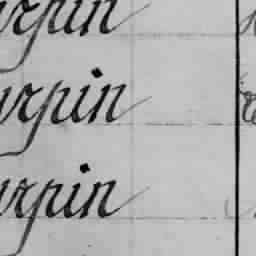 urpin
urpin
urpin